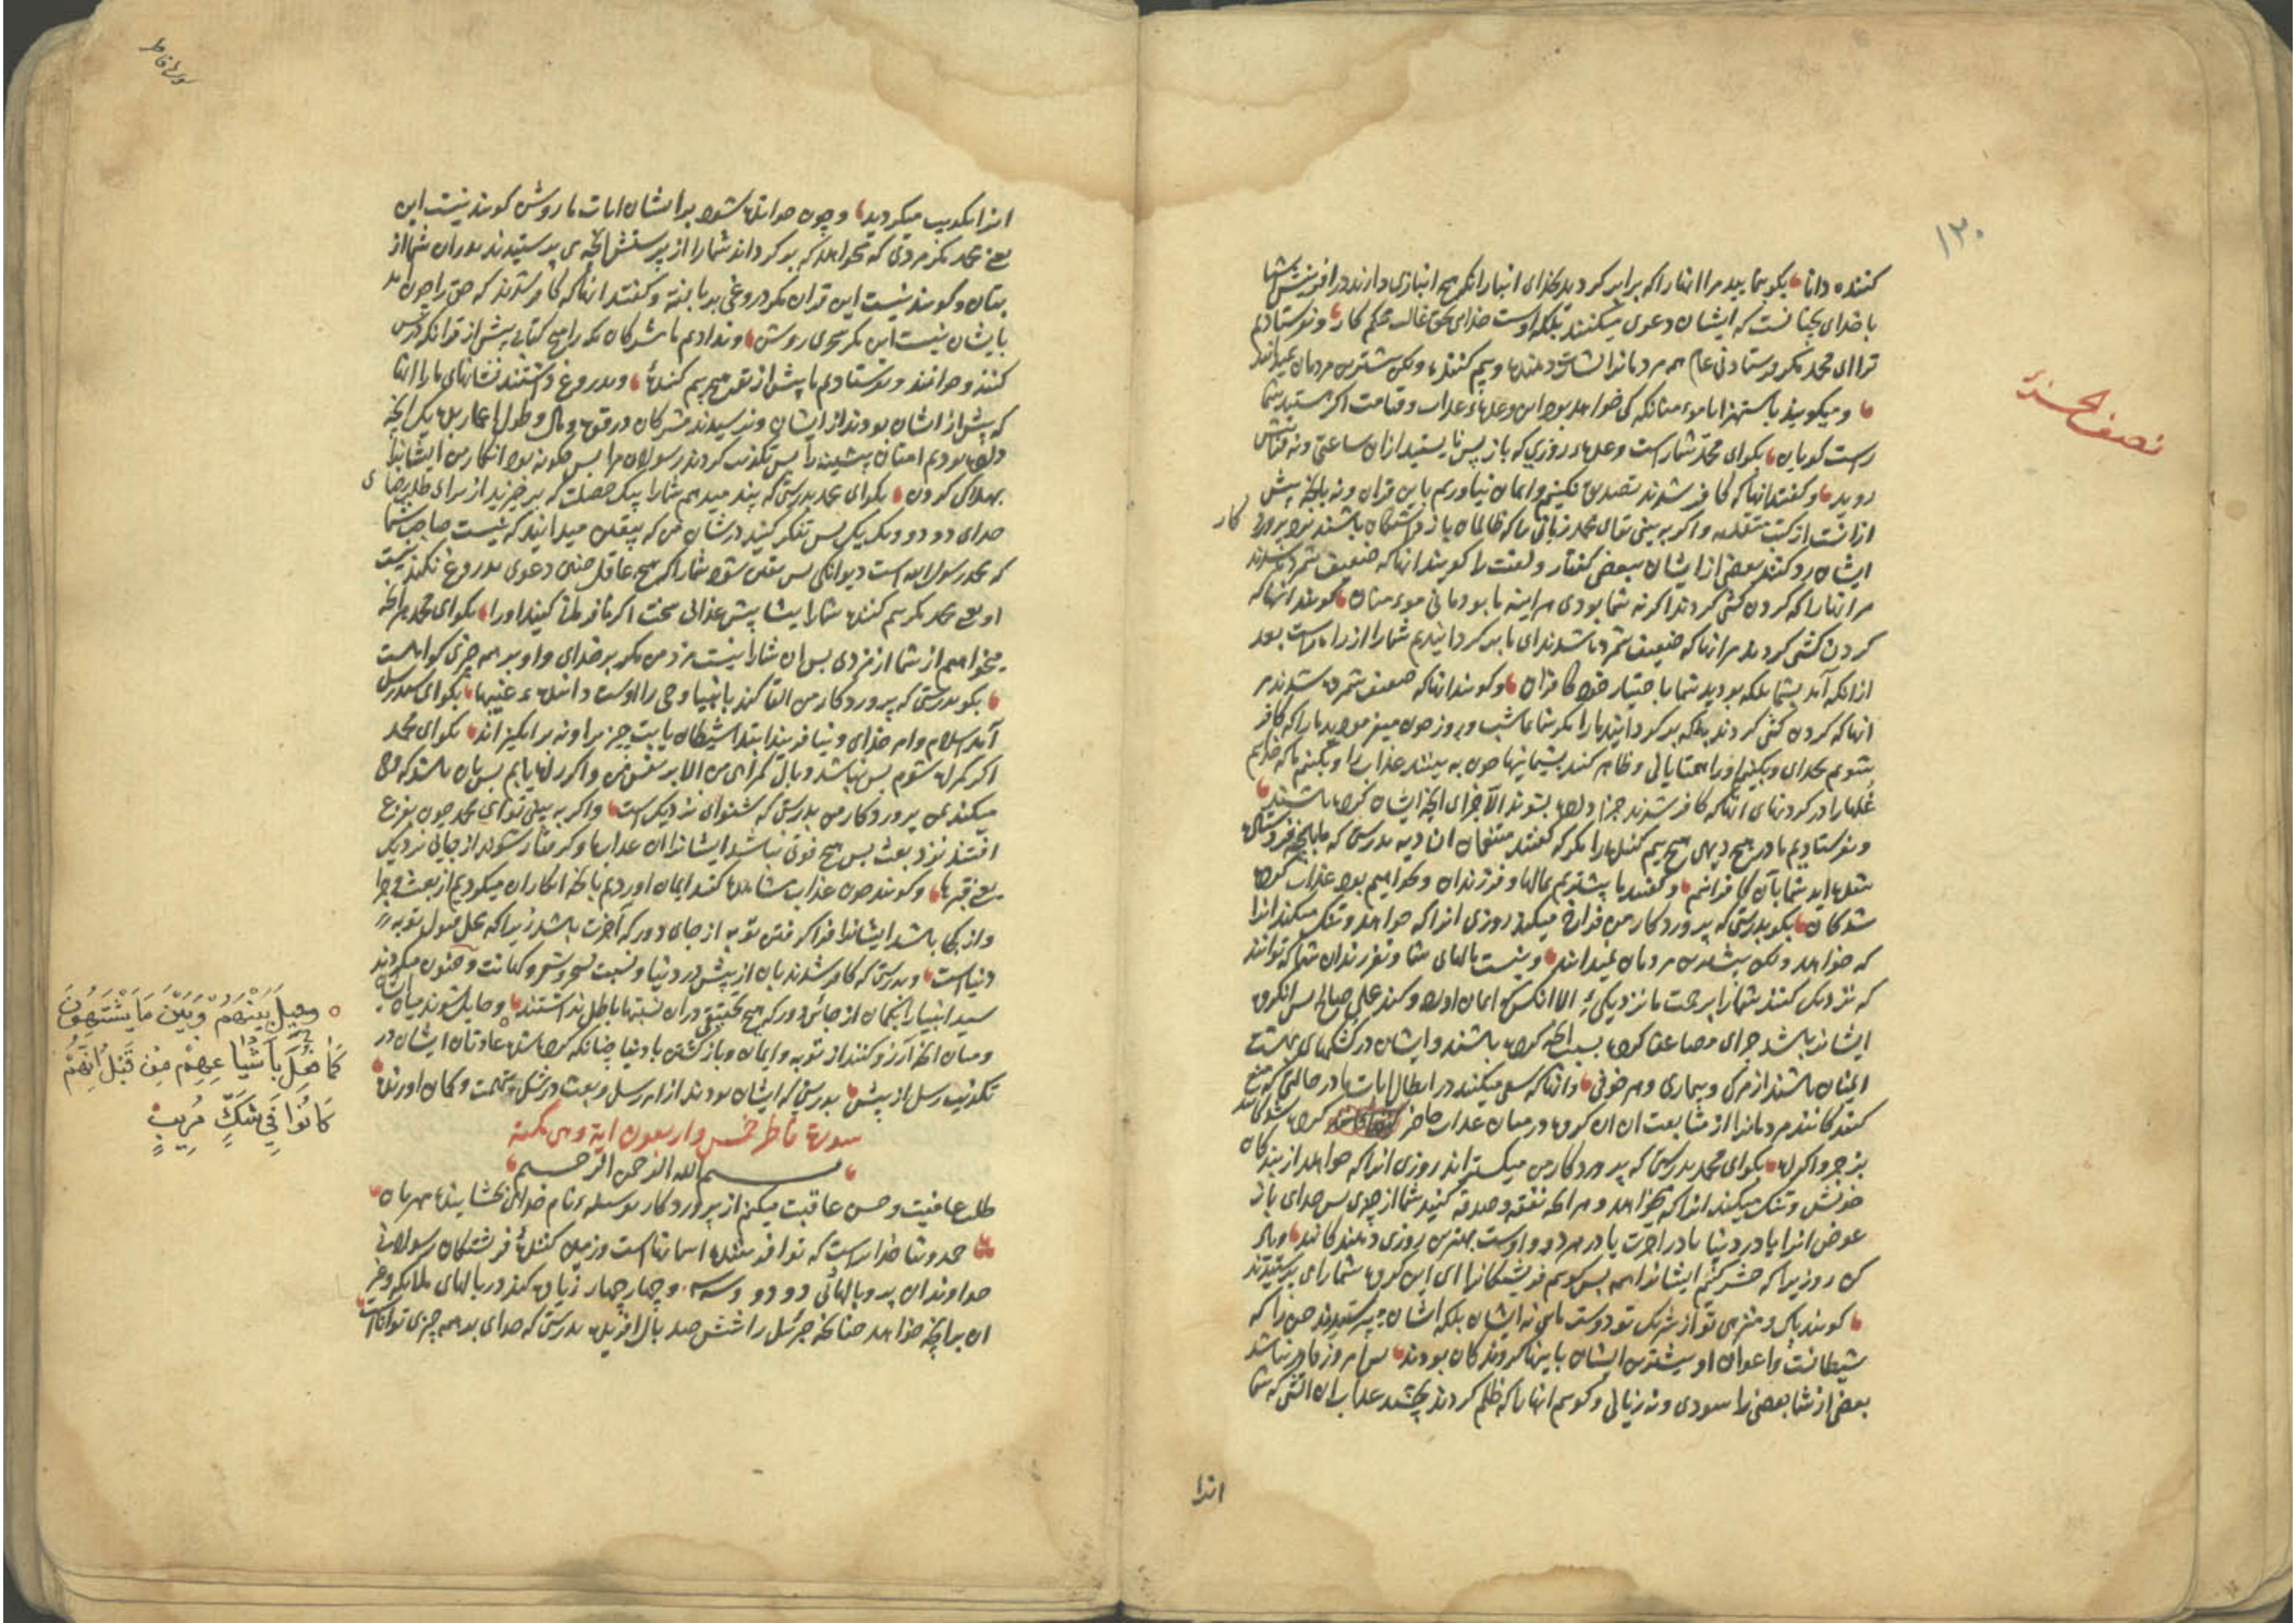 ۱۳۰
نصف الحزب
کننده دانا بکو بنمایید مرا انها را که برابر کردید بخدای انبازان که هیچ انبازی دارند در افرینش شما
با خدای چنانست که ایشان دعوی میکنند بلکه اوست خدای بحق غالب محکم کار و نفرستادیم
ترا ای محمد مکر فرستادنی عام همه مردمانرا بشارت دهنده و بیم کننده ولکن بیشترین مردمان نمیدانند
و میکویند باستهزا با مومنان که کی خواهد بود این وعده عذاب و قیامت اکر هستید شما
راست کویان بکو ای محمد شما راست وعده روزی که باز پس نایستید ازان ساعتی و نه پیش
روید و کفتند انها که کافر شدند تصدیق نکنیم و ایمان نیاوریم باین قران و نه بانچه پیش
ازانست از کتب متقدمه و اکر به بینی تو ای محمد زمانی را که ظالمان باز داشتکان باشند نزد پرورد کار
ایشان رد کنند بعضی از ایشان ببعضی کفتار و لعنت را کویند انها که ضعیف شمرده شدند
مر انها را که کردن کشی کردند اکر نه شما بودی هر اینه ما بودمانی مومنان کویند انها که
کردن کشی کردند مر انها که ضعیف شمرده شدند ای ما بر کردانیدیم شما را از راه راست بعد
ازانکه آمد بشما بلکه بودید شما باختیار خود کافران و کویند انها که ضعیف شمرده شدند مر
انها که کردن کشی کردند بلکه بر کردانید ما را مکر شما شب و روز چون میفرمودید ما را که کافر
شویم بخدای و بکنیم او را همتایانی و ظاهر کنند پشیمانیها چون به بینند عذاب را و بکنیم ما که خدایم
غلها را در کردنهای انها که کافر شدند جزا داده بشوند الا جزای انچه ایشان کرده باشند
و نفرستادیم ما در هیچ دیهی هیچ بیم کننده را مکر که کفتند متنعمان ان دیه بدرستی که ما بانچه فرستاده
شده اید شما بآن کافرانیم و کفتند ما بیشتریم بمالها و فرزندان و نخواهیم بود عذاب کرده
شدکان بکو بدرستی که پروردکار من فراخ میکند روزی انرا که خواهد و تنک میکند انرا
که خواهد ولکن بیشترین مردمان نمیدانند و نیست مالهای شما و نه فرزندان شما که توانند
که نزدیک کنند شما را برحمت ما نزدیکی الا انکس که ایمان اورد و کند عمل صالح پس انکروه
ایشانرا باشد جزای مضاعف کرده بسبب انچه کرده باشند و ایشان در کوشکهای بهشت
ایمنان باشند از مرک و بیماری و هر خوفی و انها که سعی میکنند در ابطال ایات ما در حالتی که منع
کنندکانند مردمانرا از متابعت ان ان کروه در میان عذاب حاضر کرده شدکانند
بزجر و اکراه بکو ای محمد بدرستی که پروردکار من میکستراند روزی انرا که خواهد از بندکان
خویش و تنک میکند انرا که میخواهد و هر انچه نفقه و صدقه کنید شما از چیزی پس خدای باز
عوض انرا یا در دنیا یا در اخرت یا در هر دو و اوست بهترین روزی دهندکانند و یاد
کن روزیرا که حشر کنیم ایشانرا همه پس کویم فریشتکانرا ای این کروه شما را می پرستیدند
کویند پاک و منزهی تو از شریک تو دوست مایی نه ایشان بلکه ایشان می پرستیدند جن را که
شیطانست و اعوان او بیشترین ایشان باینها کروندکان بودند پس امروز قادر نباشد
بعضی از شما بعضی را سودی و نه زیانی و کویم انها را که ظلم کردند بچشید عذاب ان اتش که شما
انرا
سوره فاطر
انرا تکذیب میکردید و چون خوانده شود بر ایشان ایات ما روشن کویند نیست این
یعنی محمد مکر مردی که میخواهد که بر کرداند شما را از پرستش انچه می پرستیدند پدران شما از
بتان و کویند نیست این قران مکر دروغی بربافته و کفتند انها که کافر شدند که حق را چون امد
بایشان نیست این مکر سحری روشن و ندادیم ما مشرکان مکه را هیچ کتابی پیش از قران که درس
کنند و خوانند و نفرستادیم ما پیش از تو هیچ بیم کننده و بدروغ داشتند نشانهای ما را انها
که پیش از ایشان بودند از ایشان و نرسیدند مشرکان در قوت و مال و طول اعمار بده یک انچه
داده بودیم امتان پیشین را پس تکذیب کردند رسولان مرا پس چکونه بود انکار من ایشانرا
بهلاک کردن بکو ای محمد بدرستی که پند میدهم شما را بیک خصلت که بر خیزید از برای طلب رضای
خدای دو دو و یک یک پس تفکر کنید در شان من که بیقین میدانید که نیست صاحب شما
که محمد رسول الله است دیوانکی پس یقین شود شما را که هیچ عاقل چنین دعوی بدروغ نکند نیست
او یعنی محمد مکر بیم کننده شما را بیشا پیش عذابی سخت اکر نافرمانی کنید او را بکو ای محمد هر انچه
میخواهم از شما از مزدی پس ان شما را نیست مزد من مکر بر خدای و او بر همه چیزی کواهست
بکو بدرستی که پروردکار من القا کند بانبیا وحی را اوست داننده غیبها بکو ای محمد رسل
آمد اسلام و امر خدای و نیافریند ابتدا شیطان یا بت چیزی را و نه برانکیزاند بکو ای محمد
اکر کمراه شوم پس نباشد وبال کمراهی من الا بر نفس من و اکر راه یابم پس بان باشد که وحی
میکند بمن پروردکار من بدرستی که شنوای نزدیک است و اکر به بینی تو ای محمد چون بفزع
افتند نزد بعث پس هیچ فوتی نباشد ایشانرا ان عذابها و کرفتار شوند از جایی نزدیک
یعنی قبرها و کویند چون عذاب مشاهده کنند ایمان اوردیم بانچه انکار ان میکردیم از بعث و جزا
و از کجا باشد ایشانرا فرا کرفتن توبه از جای دور که آخرت باشد زیرا که محل قبول توبه در
دنیاست و بدرستی که کافر شدند بان از پیش در دنیا و نسبت سحر و شعر و کهانت و جنون میکردند
سید انبیا را بکمان از جائی دور که هیچ تحقیقی دران نسبتها باطل نداشتند و حایل شوند میان ایشان
و میان انچه آرزو کنند از توبه و ایمان و باز کشتن با دنیا چنانکه کرده شد عادتان ایشان در
تکذیب رسل از پیش بدرستی که ایشان بودند از امر رسل و بعث در شکی و تهمت و کمان اورنده
سورة فاطر خمس واربعون اية وهي مكية
بسم الله الرحمن الرحيم
طلب عافیت و حسن عاقبت میکنم از پروردکار بوسیله نام خدای بخشاینده مهربان
حمد و ثنا خدا راست که نو آفریننده اسمانهاست و زمین کننده فرشتکان رسولانی
خداوندان پر و بالهائی دو دو و سه سه و چهار چهار زیاده کند در بالهای ملایکه و غیر
ان برانچه خواهد چنانچه جبرئیل را ششصد بال افریده بدرستی که خدای بر همه چیزی تواناست
وَحِيلَ بَيْنَهُمْ وَبَيْنَ مَا يَشْتَهُونَ
كَمَا فُعِلَ بِأَشْيَاعِهِمْ مِنْ قَبْلُ إِنَّهُمْ
كَانُوا فِي شَكٍّ مُرِيبٍ